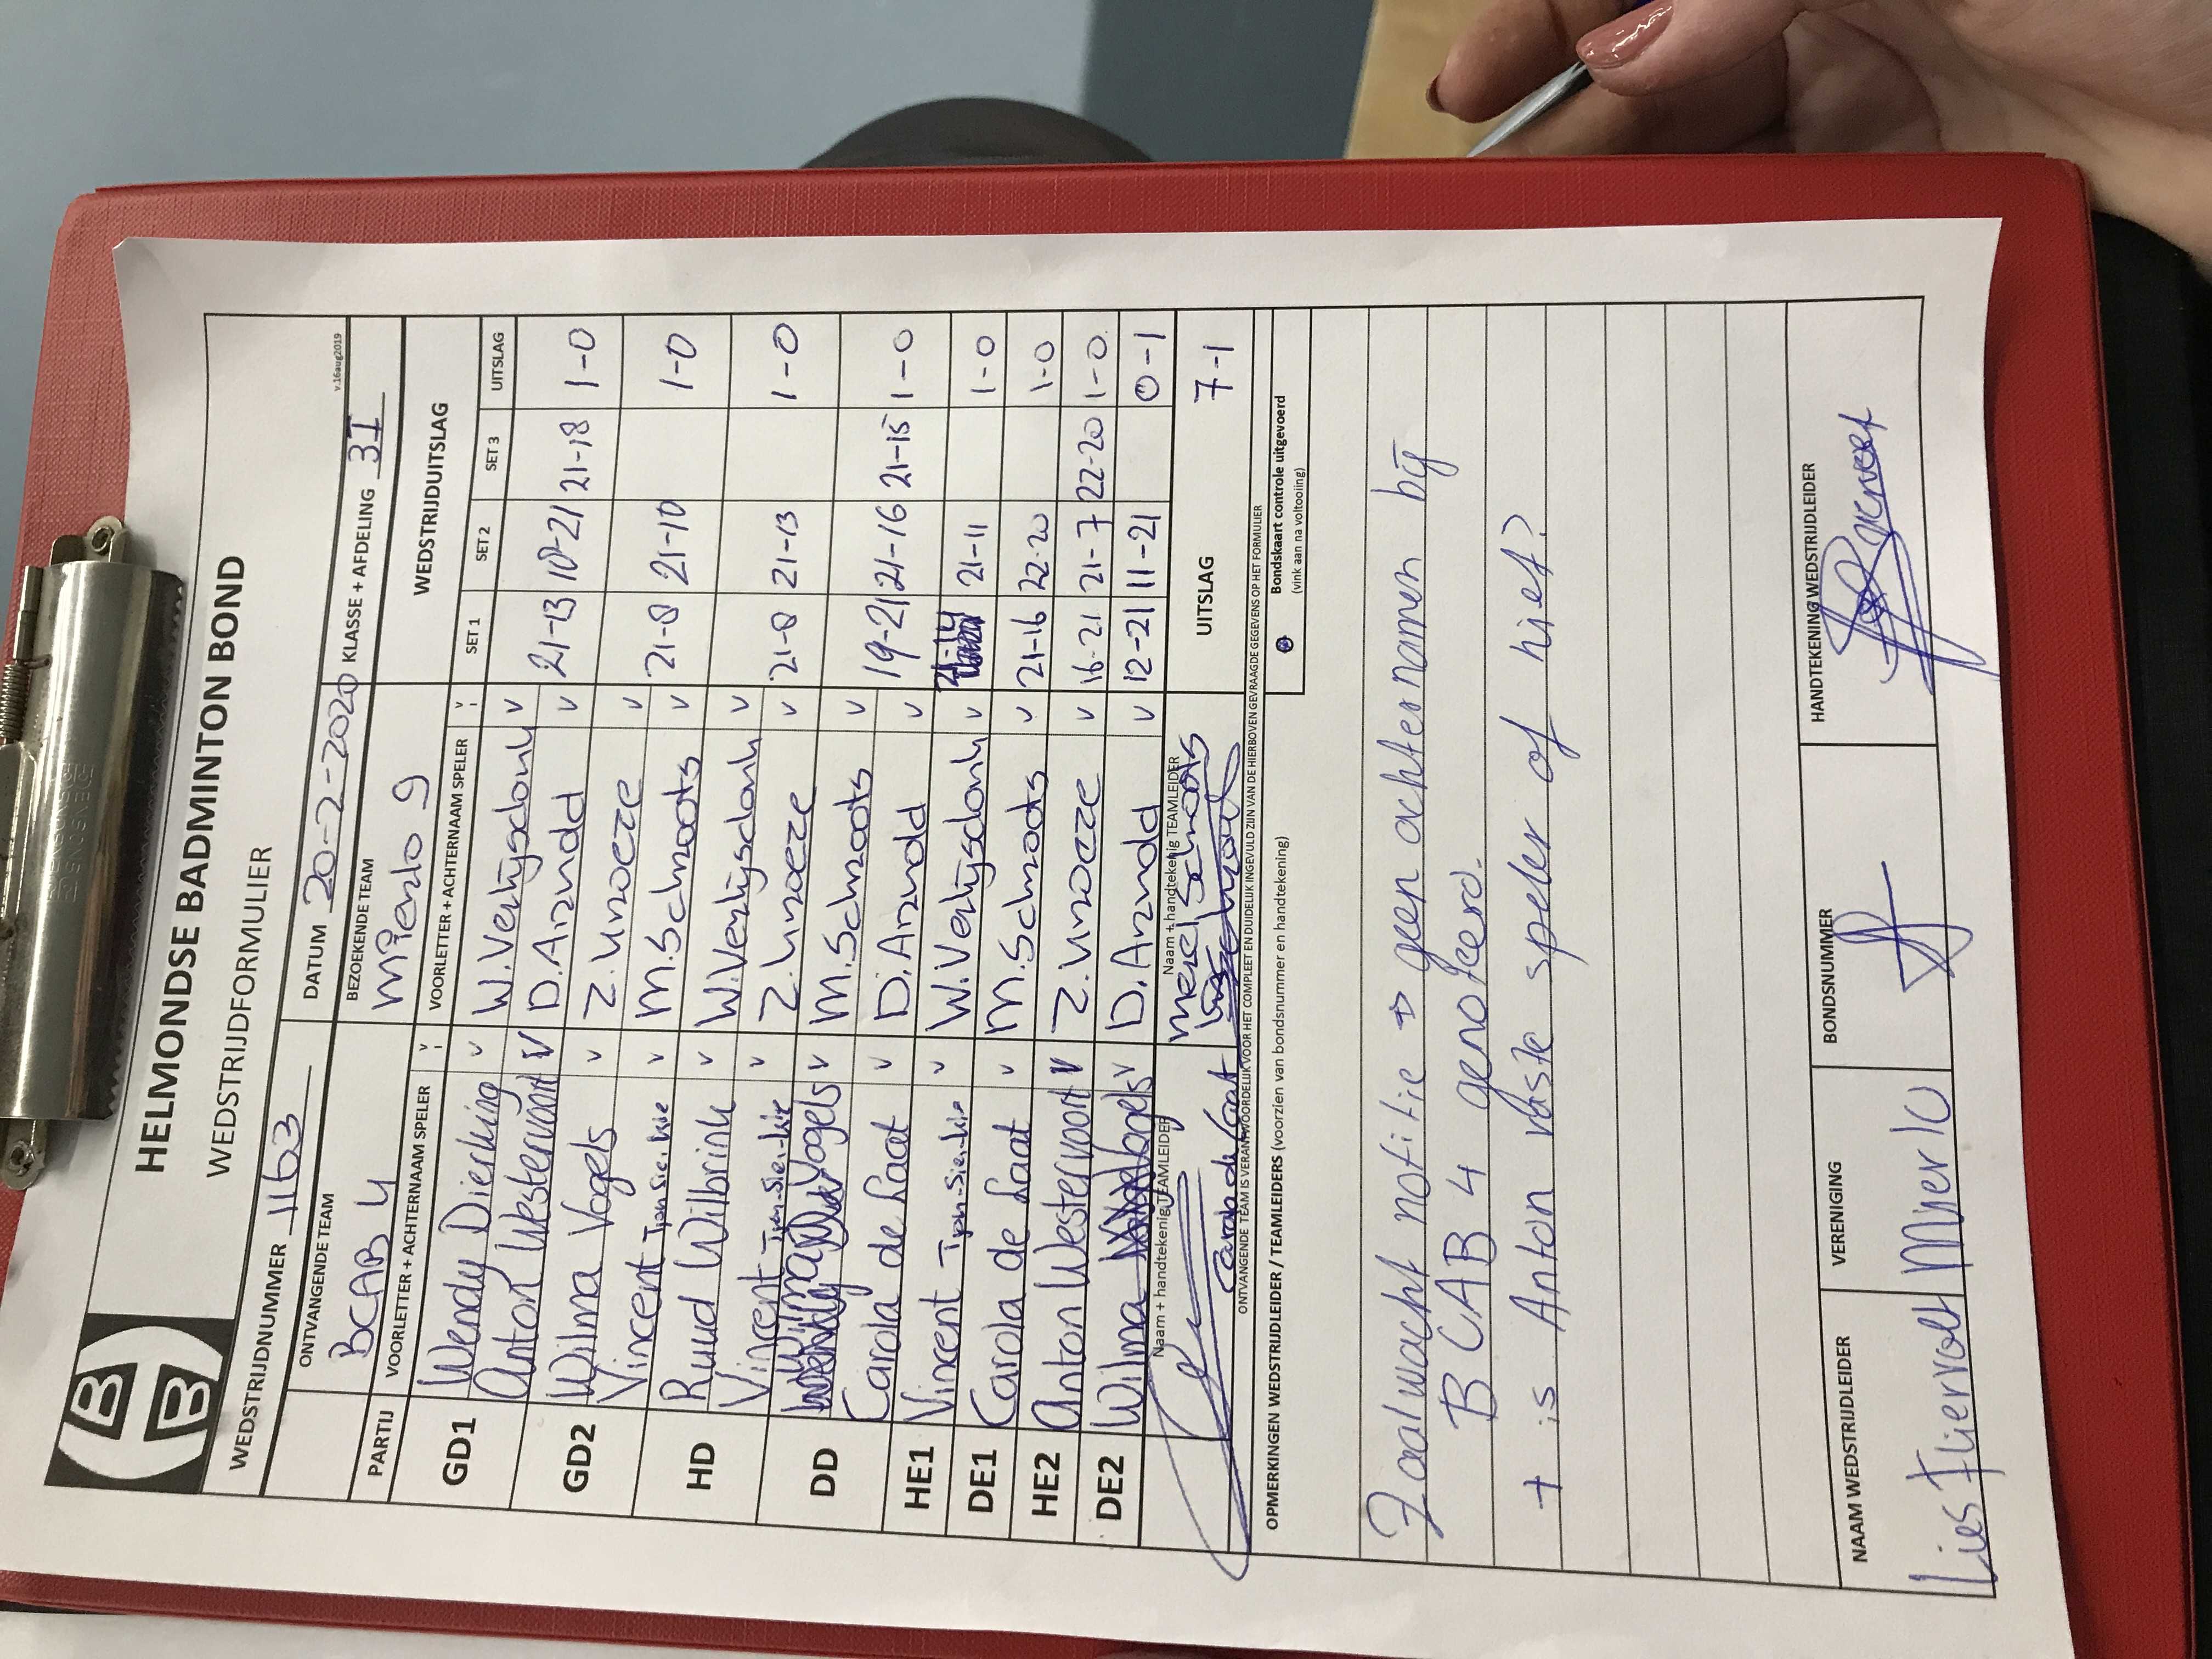 HELMONDSE BADMINTON BOND
WEDSTRIJDFORMULIER
v.16aug2019
WEDSTRIJDNUMMER 1163 DATUM 20-2-2020 KLASSE + AFDELING 3I
ONTVANGENDE TEAM BEZOEKENDE TEAM
BCAB 4 Mierlo 9
WEDSTRIJDUITSLAG
PARTIJ VOORLETTER + ACHTERNAAM SPELER V VOORLETTER + ACHTERNAAM SPELER V SET 1 SET 2 SET 3 UITSLAG
GD1 Wendy Dierking v W.Verhijsdonk v 21-13 10-21 21-18 1-0
Anton Westervoort v D.Arnold v
GD2 Wilma Vogels v Z.Unoeze v 21-8 21-10 1-0
Vincent Tjon-Sie-Kie v M.Schroots v
HD Ruud Wilbrink v W.Verhijsdonk v 21-8 21-13 1-0
Vincent Tjon-Sie-Kie v Z.Unoeze v
DD Vogels v M.Schroots v 19-21 21-16 21-15 1-0
Carola de Laat v D.Arnold v
HE1 Vincent Tjon-Sie-Kie v W.Verhijsdonk v 21-14 21-11 1-0
DE1 Carola de Laat v M.Schroots v 21-16 22-20 1-0
HE2 Anton Westervoort v Z.Unoeze v 16-21 21-7 22-20 1-0
DE2 Wilma Vogels v D.Arnold v 12-21 11-21 0-1
Naam + handtekenig TEAMLEIDER Naam + handtekenig TEAMLEIDER UITSLAG 7-1
Carola de Laat Merel Schroots
ONTVANGENDE TEAM IS VERANTWOORDELIJK VOOR HET COMPLEET EN DUIDELIJK INGEVULD ZIJN VAN DE HIERBOVEN GEVRAAGDE GEGEVENS OP HET FORMULIER
OPMERKINGEN WEDSTRIJDLEIDER / TEAMLEIDERS (voorzien van bondsnummer en handtekening) Bondskaart controle uitgevoerd
(vink aan na voltooiing)
Zaalwacht notitie → geen achternamen bij
BCAB 4 genoteerd.
+ is Anton vaste speler of niet?
NAAM WEDSTRIJDLEIDER VERENIGING BONDSNUMMER HANDTEKENING WEDSTRIJDLEIDER
Lies Fliervoet Mierlo